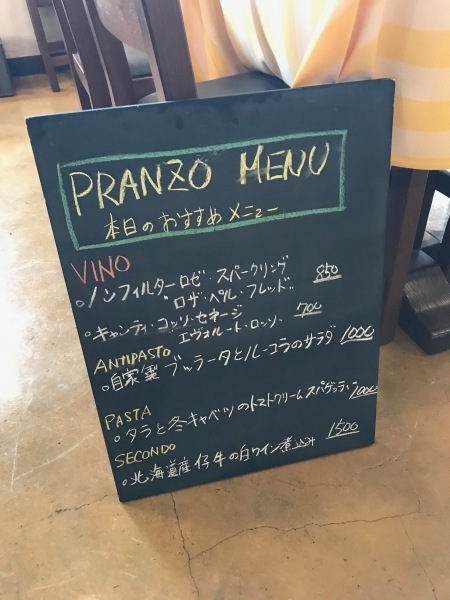 PRANZO MENU
本日のおすすめメニュー
VINO
○ノンフィルターロゼ・スパークリング 850
"ロザ・ペル・フレッド"
○キャンティ・コッリ・セネージ 700
エヴォルート・ロッソ
ANTIPASTO
○自家製 ブッラータとルーコラのサラダ 1000
PASTA
○タラと冬キャベツのトマトクリームスパゲッティ 1000
SECONDO
○北海道産仔牛の白ワイン煮込み 1500